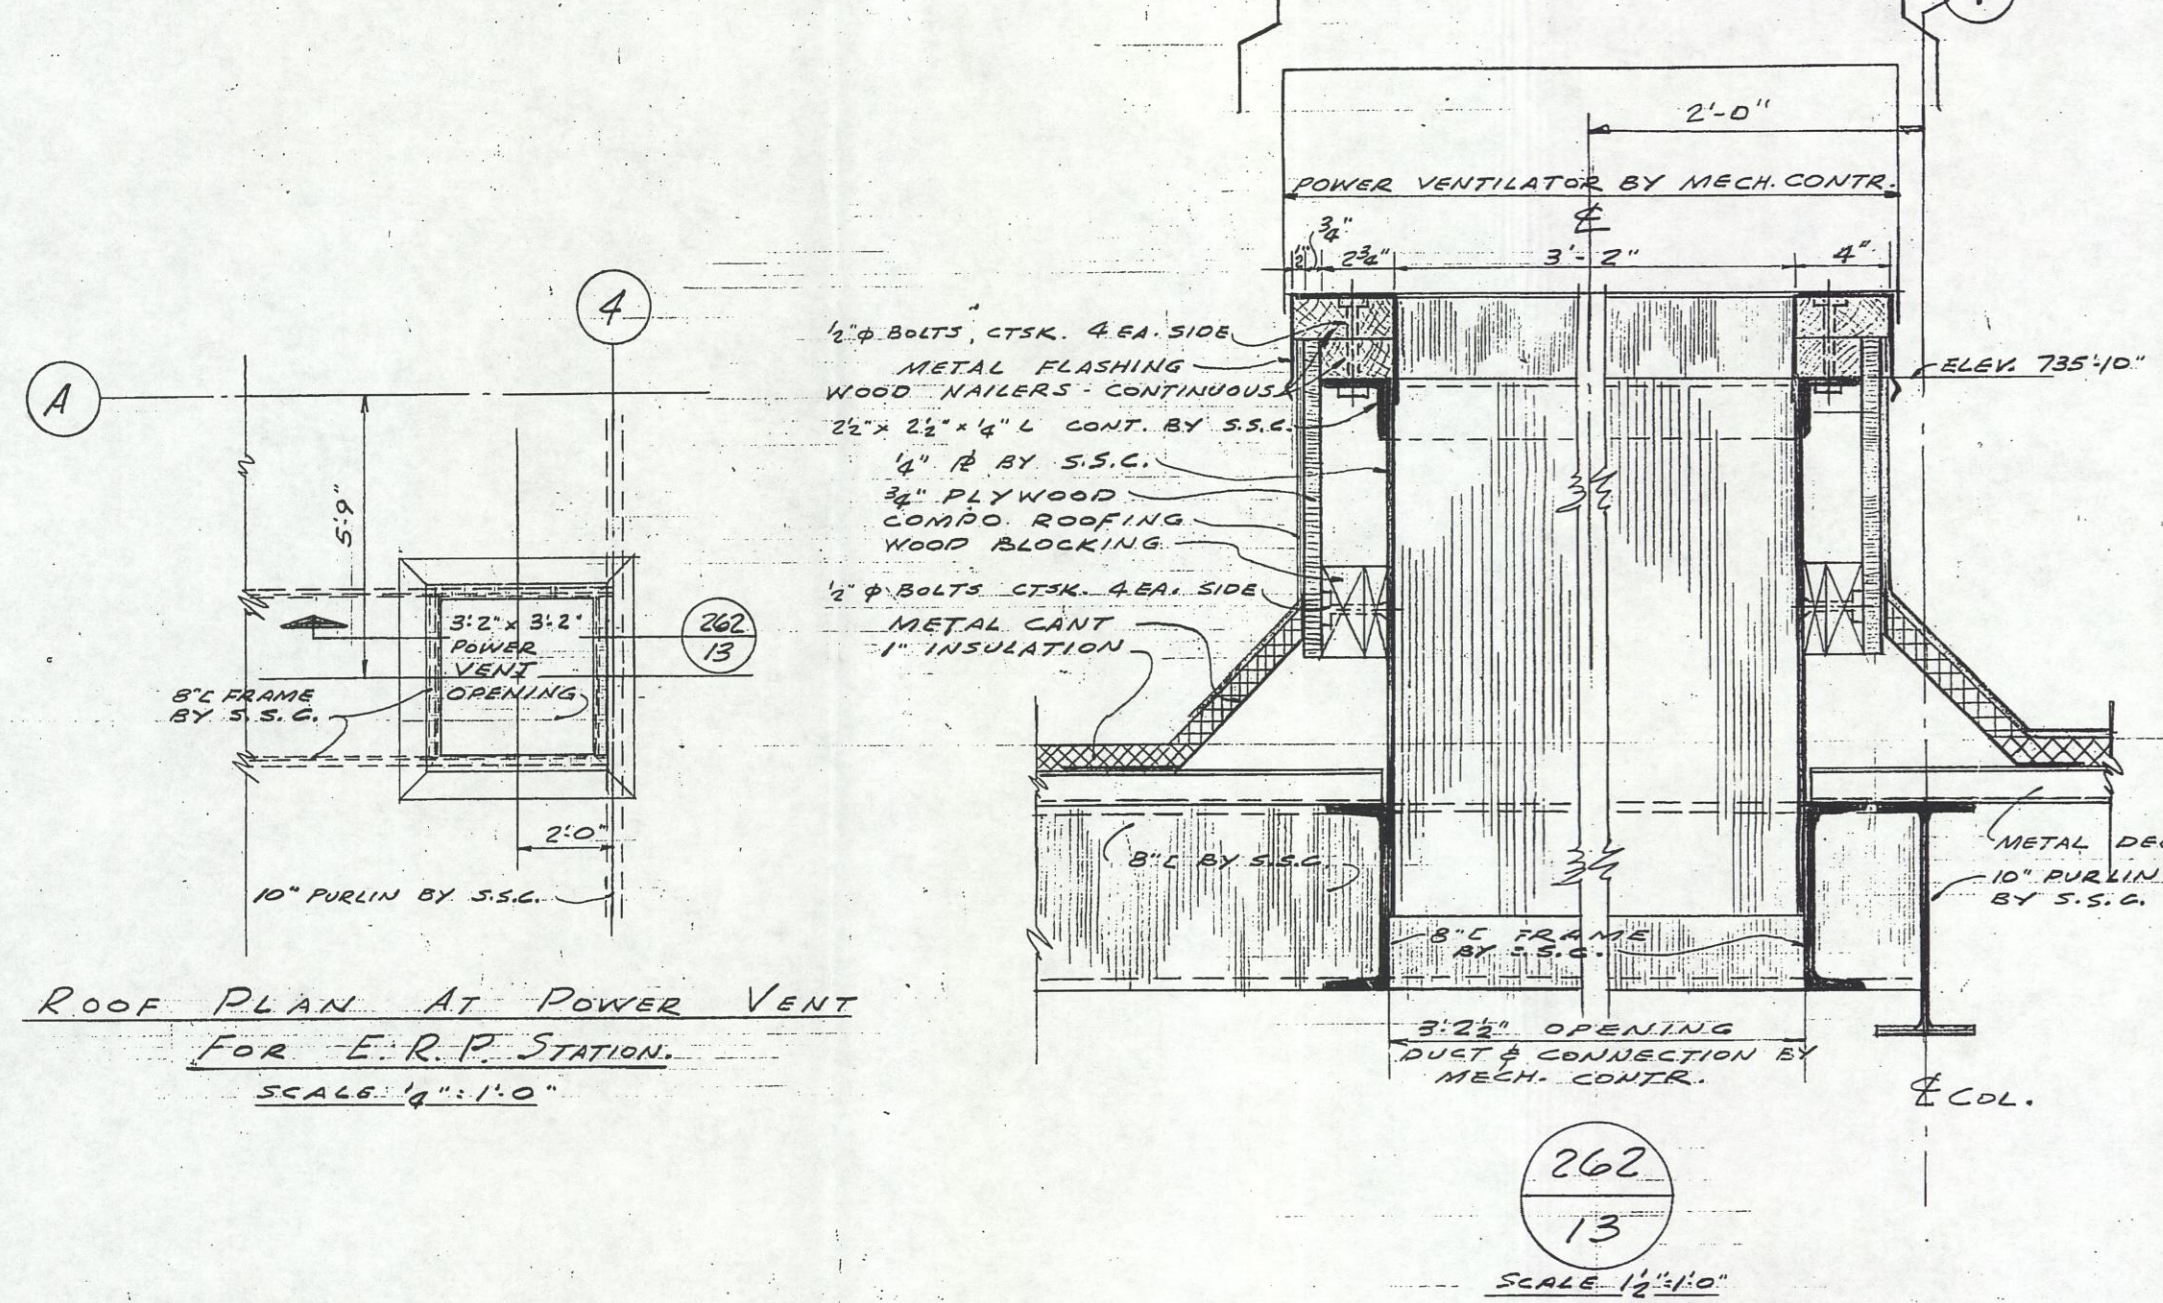 4
A
5'-9"
3'-2" x 3'-2"
POWER
VENT
OPENING
262
13
8"[ FRAME
BY S.S.C.
2'-0"
10" PURLIN BY S.S.C.
ROOF PLAN AT POWER VENT
FOR E.R.P. STATION.
SCALE 1/4" : 1'-0"
2'-0"
POWER VENTILATOR BY MECH. CONTR.
℄
1/2"
3/4"
2 3/4"
3'-2"
4"
1/2"φ BOLTS, CTSK. 4 EA. SIDE
METAL FLASHING
WOOD NAILERS - CONTINUOUS
2 1/2" x 2 1/2" x 1/4" L CONT. BY S.S.C.
1/4" ℞ BY S.S.C.
3/4" PLYWOOD
COMPO. ROOFING
WOOD BLOCKING
1/2"φ BOLTS CTSK. 4 EA. SIDE
METAL CANT
1" INSULATION
ELEV. 735'-10"
8"[ BY S.S.C.
METAL DEC
10" PURLIN
BY S.S.C.
8"[ FRAME
BY S.S.C.
3'-2 1/2" OPENING
DUCT & CONNECTION BY
MECH. CONTR.
℄ COL.
262
13
SCALE 1 1/2" : 1'-0"